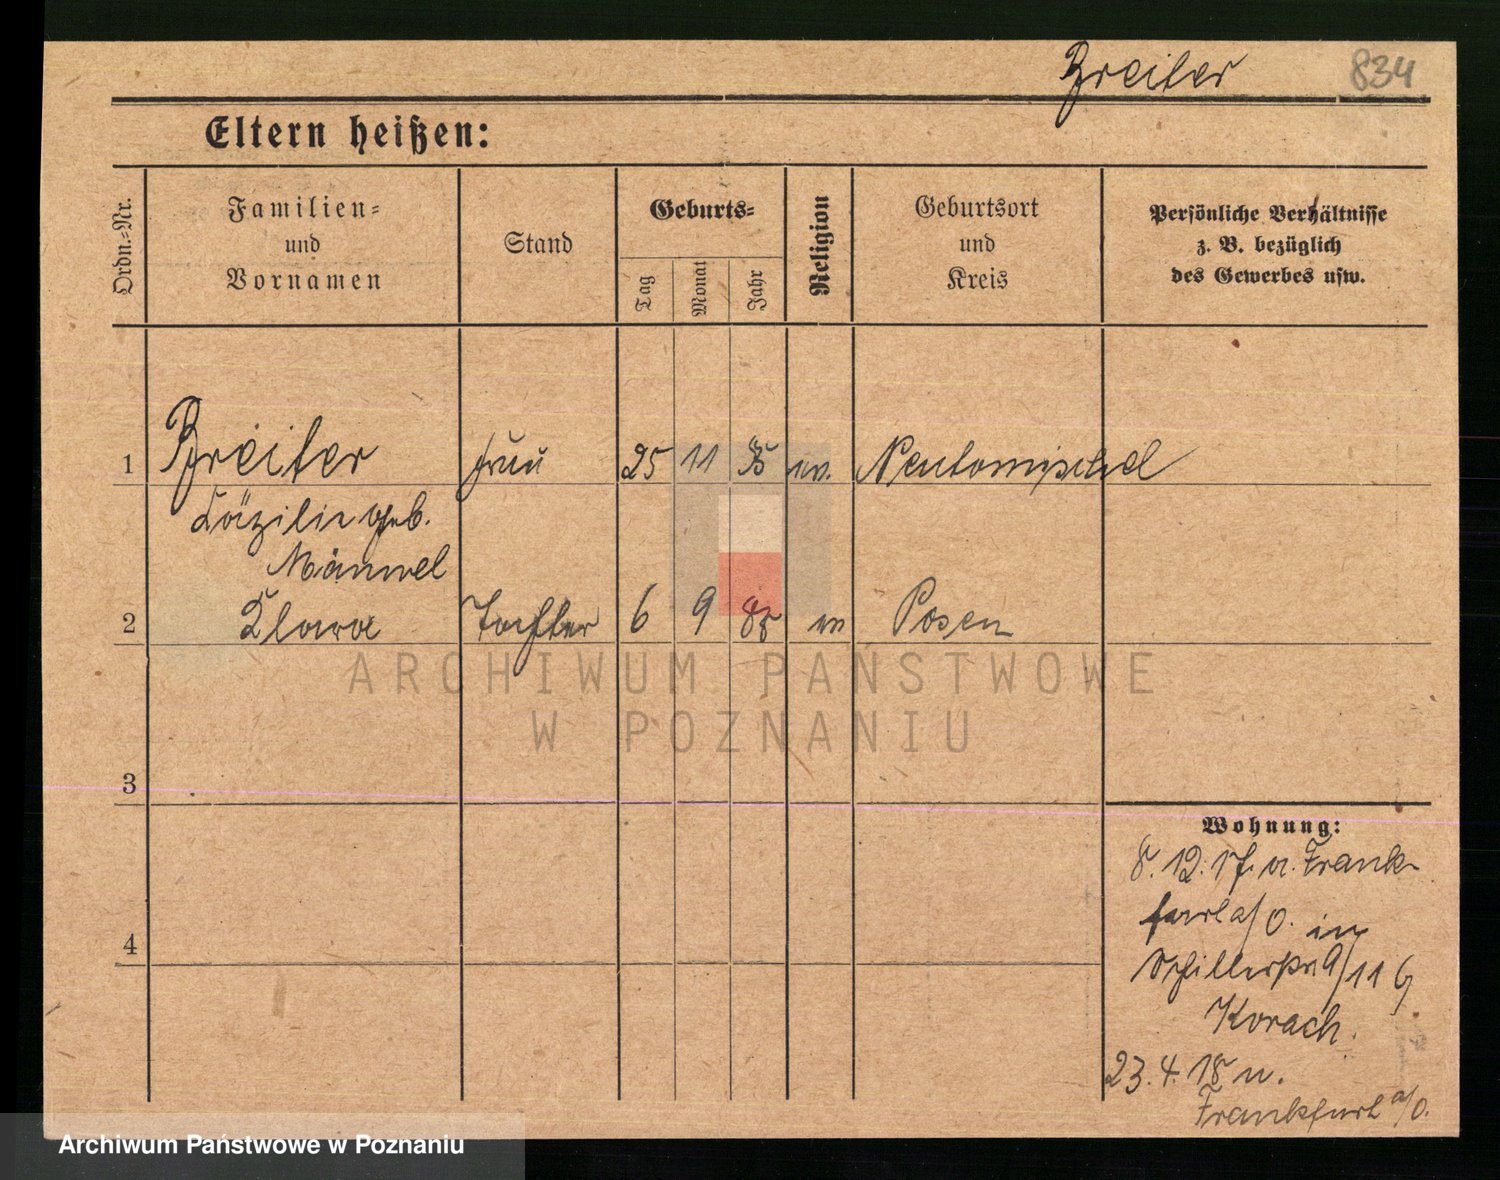 Breiter 834
Eltern heißen:
Ordn.-Nr.
Familien-
und
Vornamen
Stand
Geburts-
Tag
Monat
Jahr
Religion
Geburtsort
und
Kreis
Persönliche Verhältnisse
z. B. bezüglich
des Gewerbes usw.
1 Breiter Frau 25 11 Neutomischel
Cäzilie geb.
Manwel
2 Klara Tochter 6 9 85 Posen
3
4
Wohnung:
8.12.17. a. Frank-
furt a/O. in
Schillerstr. 9/11
Korach.
23.4.18 n.
Frankfurt a/O.
ARCHIWUM PAŃSTWOWE
W POZNANIU
Archiwum Państwowe w Poznaniu